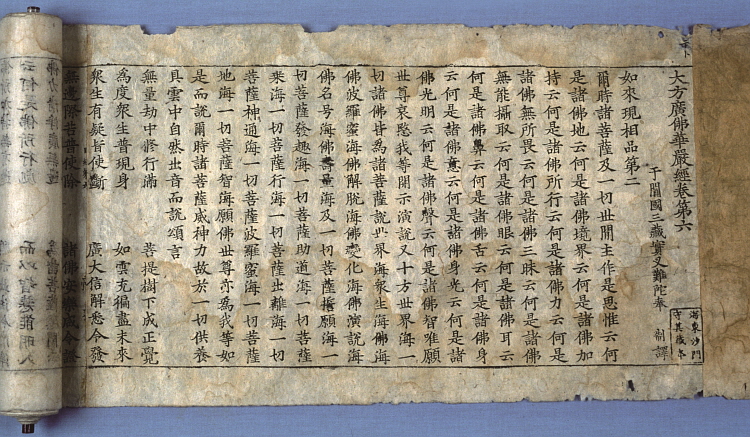 大方廣佛華嚴經卷第六
海東沙門
守其藏本
于闐國三藏實叉難陀奉 制譯
如來現相品第二
爾時諸菩薩及一切世間主作是思惟云何
是諸佛地云何是諸佛境界云何是諸佛加
持云何是諸佛所行云何是諸佛力云何是
諸佛無所畏云何是諸佛三昧云何是諸佛
無能攝取云何是諸佛眼云何是諸佛耳云
何是諸佛鼻云何是諸佛舌云何是諸佛身
云何是諸佛意云何是諸佛身光云何是諸
佛光明云何是諸佛聲云何是諸佛智唯願
世尊哀愍我等開示演說又十方世界海一
切諸佛皆爲諸菩薩說世界海衆生海佛海
佛波羅蜜海佛解脫海佛變化海佛演說海
佛名号海佛壽量海及一切菩薩誓願海一
切菩薩發趣海一切菩薩助道海一切菩薩
乘海一切菩薩行海一切菩薩出離海一切
菩薩神通海一切菩薩波羅蜜海一切菩薩
地海一切菩薩智海願佛世尊亦爲我等如
是而說爾時諸菩薩威神力故於一切供養
具雲中自然出音而說頌言
無量劫中修行滿 菩提樹下成正覺
爲度衆生普現身 如雲充徧盡未來
衆生有疑皆使斷 廣大信解悉令發
無邊際苦普使除 諸佛安樂咸令證
云何是佛所行處 而以智慧能明入